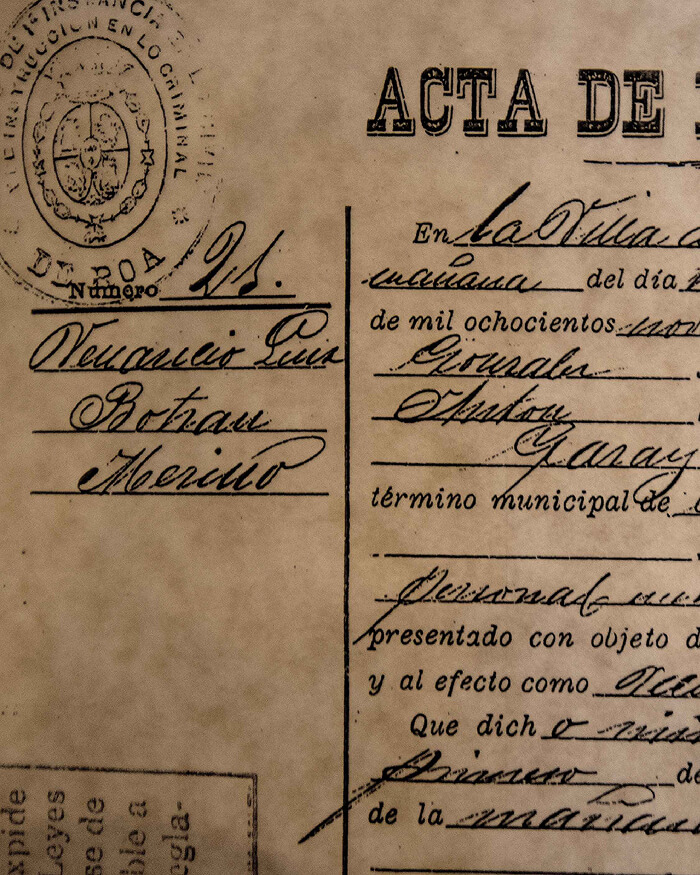 DE 1ª INSTANCIA
E INSTRUCCION EN LO CRIMINAL
DE ROA
Número 21.
Venancio Luis
Botran
Merino
ACTA DE
En la Villa
mañana del día
de mil ochocientos nov
Gonzalez
Anton
Garay
término municipal de
Personal
presentado con objeto d
y al efecto como
Que dicho
de
de la mañana
xpide
Leyes
se de
ble a
egla-